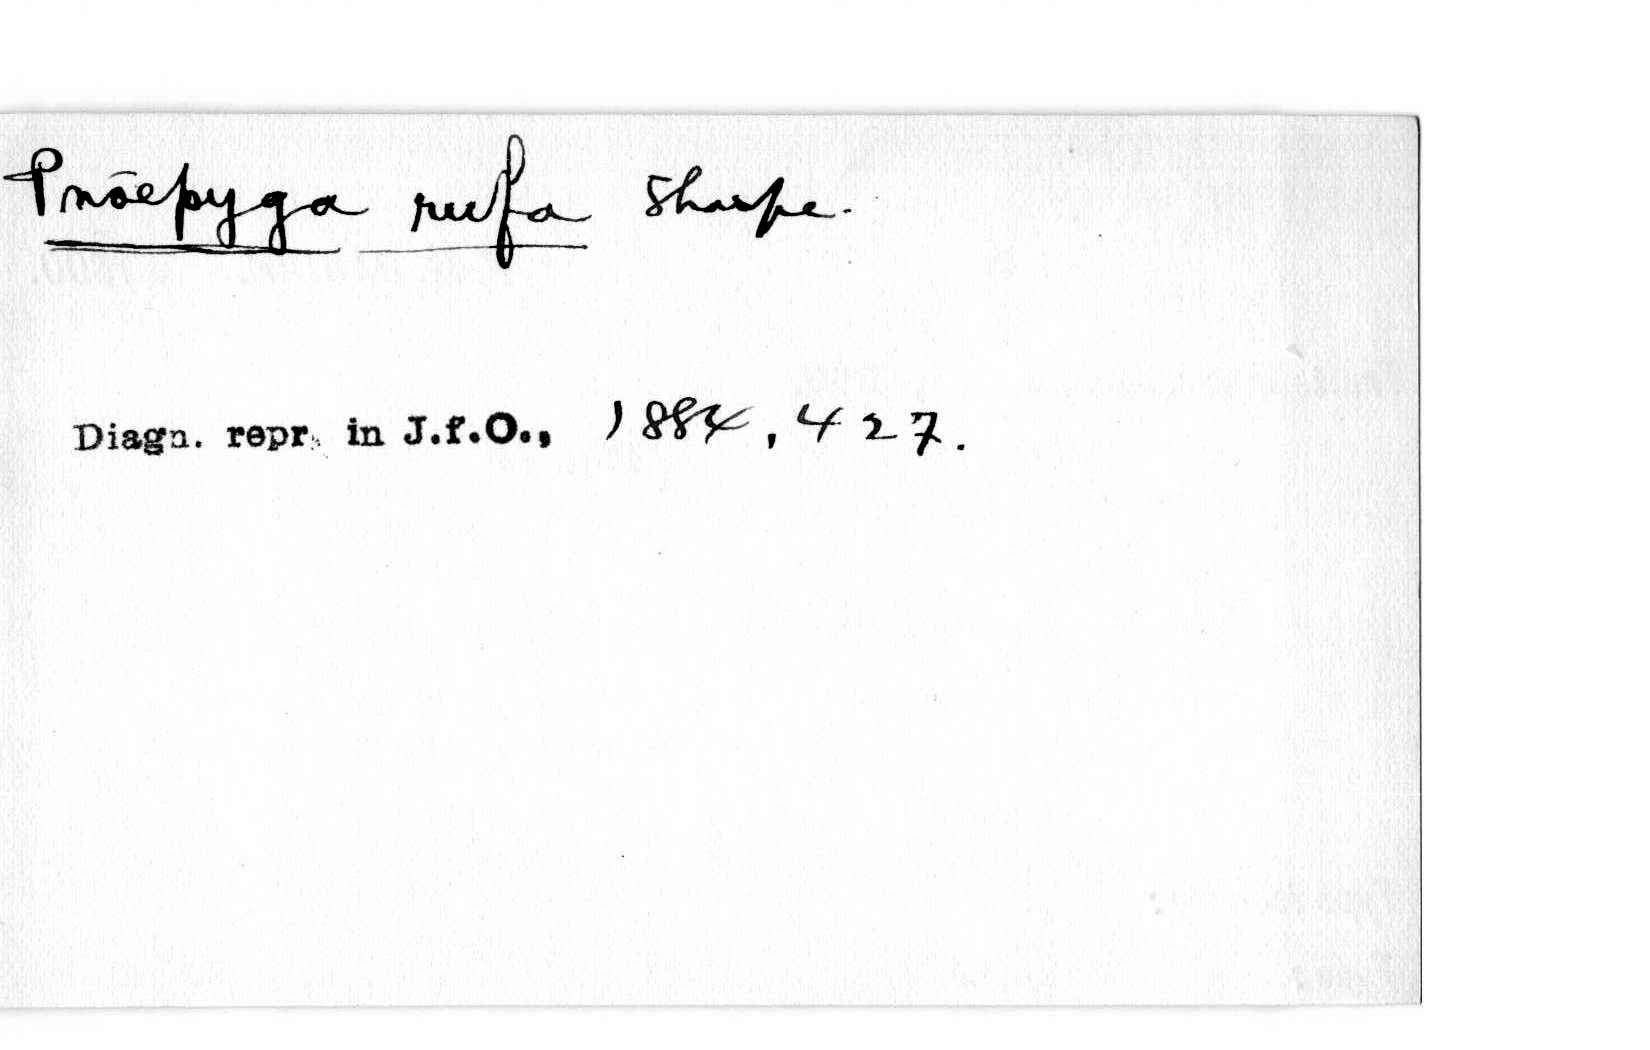 Pnöepyga rufa Sharpe.
Diagn. repr. in J.f.O., 1884, 427.